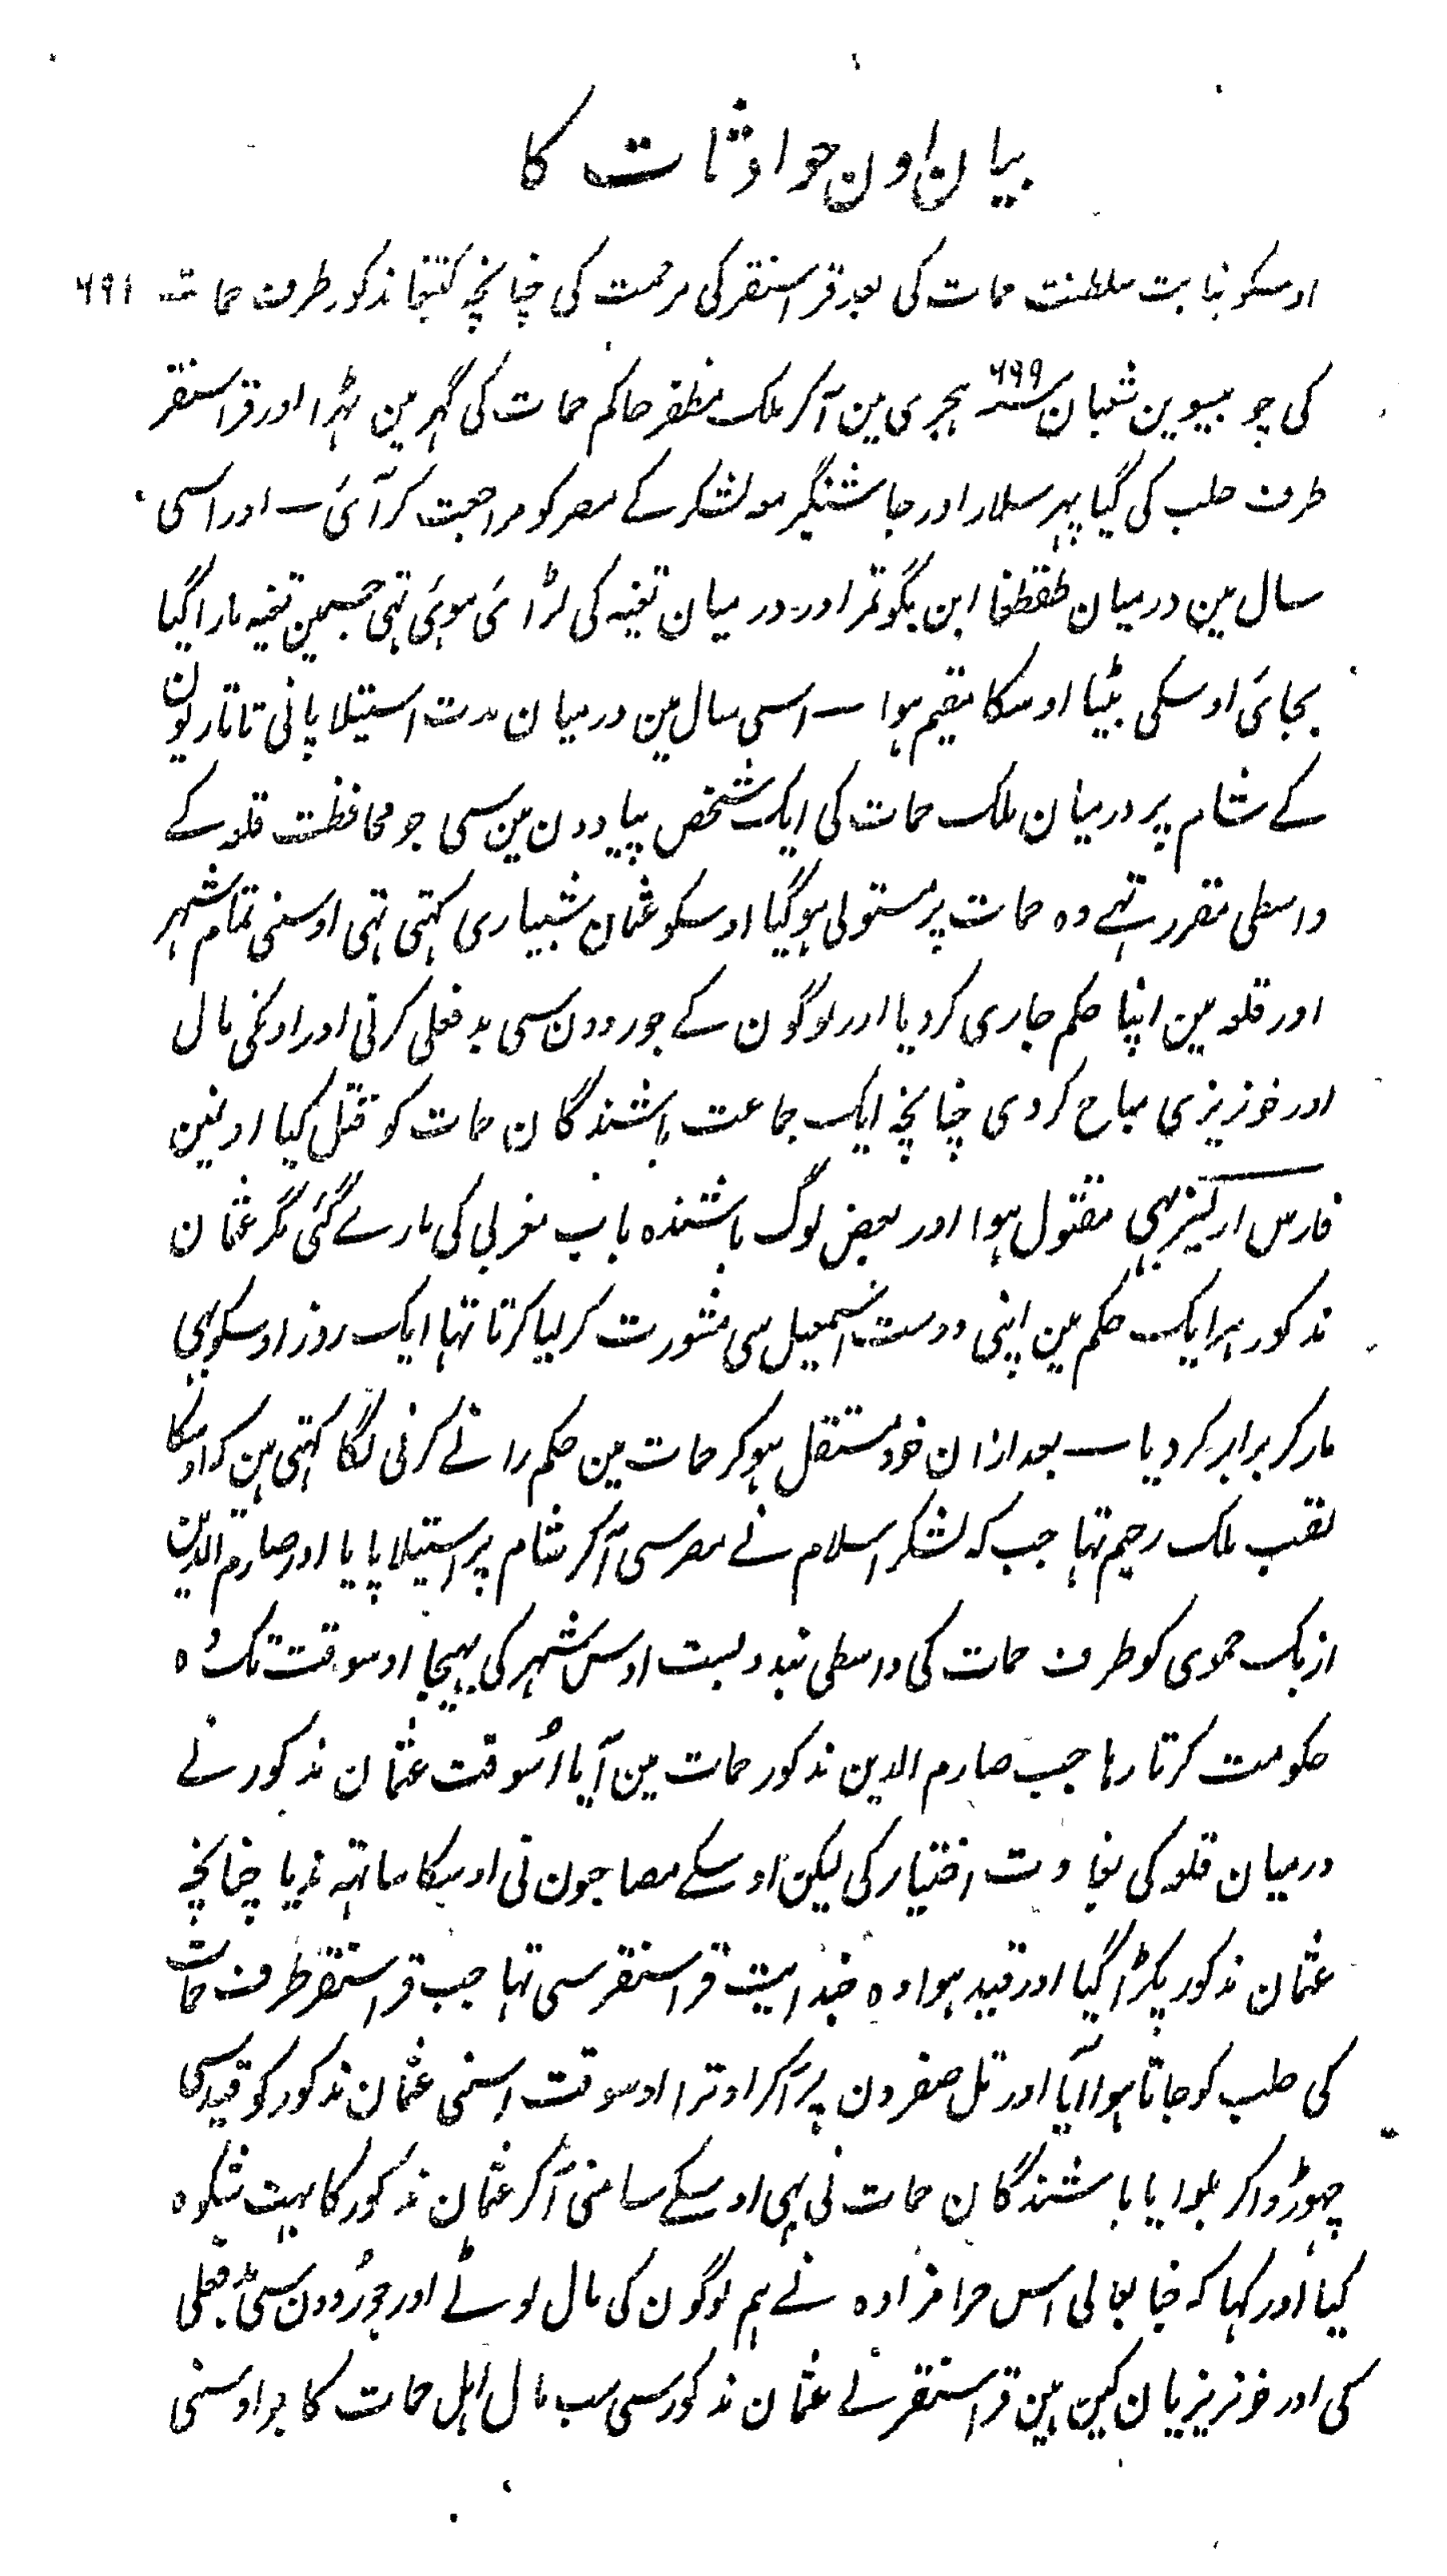 بیان اون حوادثات کا
اوسکو نیابت سلطنت حمات کی بعد قراسنقر کی مرحمت کی چنانچہ کتبغا مذکور طرف حمات ۶۹۱
کی چوبیسوین شعبان سنہ ۶۹۹ ہجری مین آکر ملک مظفر حاکم حمات کی گہر مین ٹہرا اور قراسنقر
طرف حلب کی گیا پہر سلار اور جاشنگیر معہ لشکر کے مصر کو مراجعت کر آئی ــ اور اسی
سال مین درمیان طقطغا ابن بگوتمر اور درمیان تغیہ کی لڑائی ہوئی تہی جسمین تغیہ مارا گیا
بجائی اوسکی بیٹا اوسکا مقیم ہوا ــ اسی سال مین درمیان مدت استیلا پانی تاتاریون
کے شام پر درمیان ملک حمات کی ایک شخص پیادون مین سی جو محافظت قلعہ کے
واسطی مقرر تہے وہ حمات پر مستولی ہوگیا اوسکو عثمان شبیاری کہتی تہی اوسنی تمام شہر
اور قلعہ مین اپنا حکم جاری کردیا اور لوگون کے جوروون سی بدفعلی کرنی اور اونکی مال
اور خونریزی مباح کردی چنانچہ ایک جماعت باشندگان حمات کو قتل کیا اونمین
فارس ارلیز بہی مقتول ہوا اور بعض لوگ باشندہ باب مغربی کی مارے گئی مگر عثمان
مذکور ہر ایک حکم مین اپنی دوست اسمعیل سی مشورت کرلیا کرتا تہا ایک روز اوسکو بہی
مار کر برابر کردیا ــ بعد ازان خود مستقل ہوکر حمات مین حکم رانے کرنی لگا کہتی ہین کہ اوسکا
لقب ملک رحیم تہا جب کہ لشکر اسلام نے مصر سی آکر شام پر استیلا پایا اور صارم الدین
ازبک حموی کو طرف حمات کی واسطی بندوبست اوس شہر کی بہیجا اوسوقت تک وہ
حکومت کرتا رہا جب صارم الدین مذکور حمات مین آیا اُسوقت عثمان مذکور نے
درمیان قلعہ کی بغاوت اختیار کی لیکن اوسکے مصاحبون نی اوسکا ساتہہ ندیا چنانچہ
عثمان مذکور پکڑا گیا اور قید ہوا وہ قراسنقر سی تہا جب قراسنقر طرف حمات
کی حلب کو جاتا ہوا آیا اور تل صفرون پر آکر اوترا اوسوقت اسنی عثمان مذکور کو قید سی
چہوڑوا کر بلوایا باشندگان حمات نی بہی اوسکے سامنی آکر عثمان مذکور کا بہت شکوہ
کیا اور کہا کہ جناب عالی اس حرامزادہ نے ہم لوگون کی مال لوٹے اور جوروون سی بدفعلی
کی اور خونریزیان کین ہین قراسنقر نے عثمان مذکور سی سب مال اہل حمات کا جو اوسنی